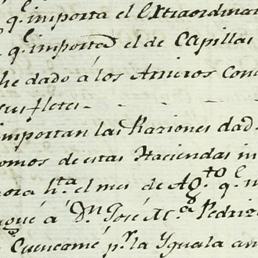 q.e importa el Extraordinar
q.e importa el de Capillas
he dado á los Arrieros Con
sus fletes
importan las Raziones dad
omos de estas Haciendas in
ora h.ta el mes de Ag.to q.e
agué á D.n José M.a Pedriz
Cuencamé p.r la Yguala an